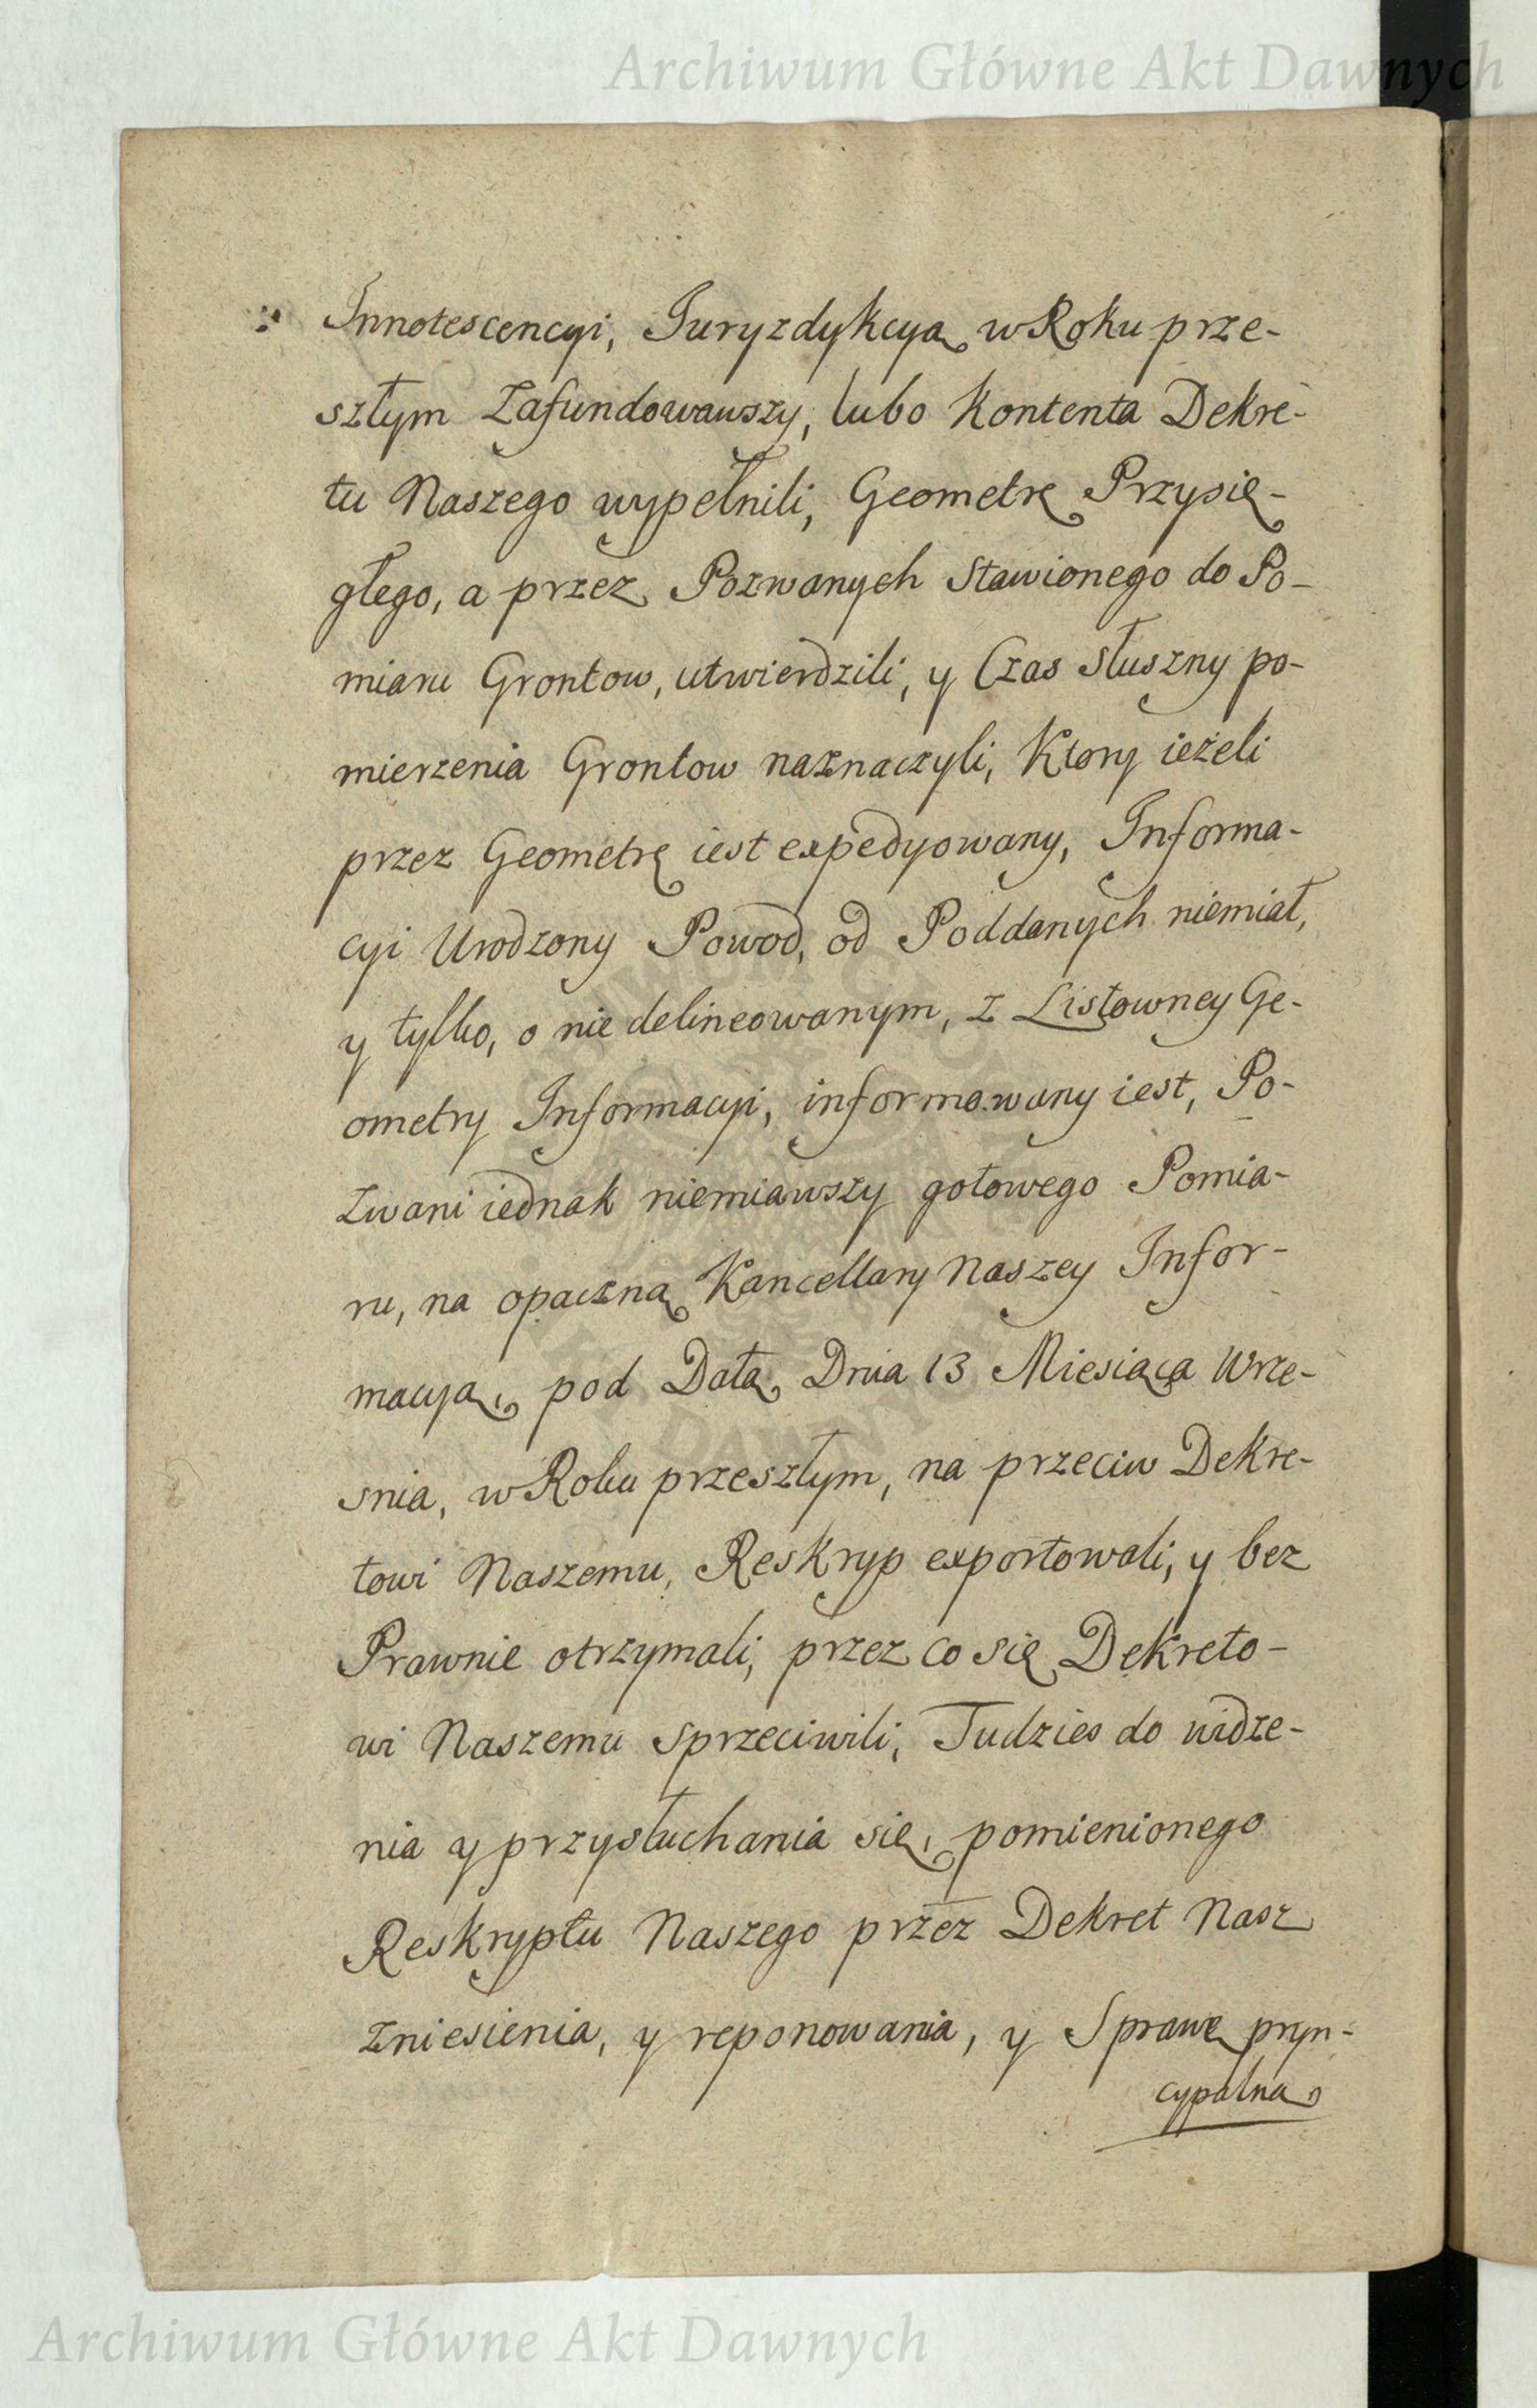 Archiwum Główne Akt Dawnych
Innotescencyi, Juryzdykcyą w Roku prze-
szłym Zafundowawszy, lubo Kontenta Dekre-
tu Naszego wypełnili, Geometrę Przysię-
głego, a przez Pozwanych Stawionego do Po-
miaru Grontow, utwierdzili, y Czas Słuszny po-
mierzenia Grontow naznaczyli, Ktory ieżeli
przez Geometrę iest expedyowany, Informa-
cyi Urodzony Powod, od Poddanych niemiał,
y tylko, o nie delineowanym, z Listowney Ge-
ometry Informacyi, informowany iest, Po-
zwani iednak niemiawszy gotowego Pomia-
ru, na opaczną Kancellary Naszey Infor-
macyą, pod Datą Dnia 13 Miesiąca Wrze-
snia, w Roku przeszłym, na przeciw Dekre-
towi Naszemu, Reskryp exportowali, y bez
Prawnie otrzymali, przez co się Dekreto-
wi Naszemu Sprzeciwili, Tudzies do widze-
nia y przysłuchania się, pomienionego
Reskryptu Naszego przez Dekret Nasz
Zniesienia, y reponowania, y Sprawę pryn-
cypalną
Archiwum Główne Akt Dawnych